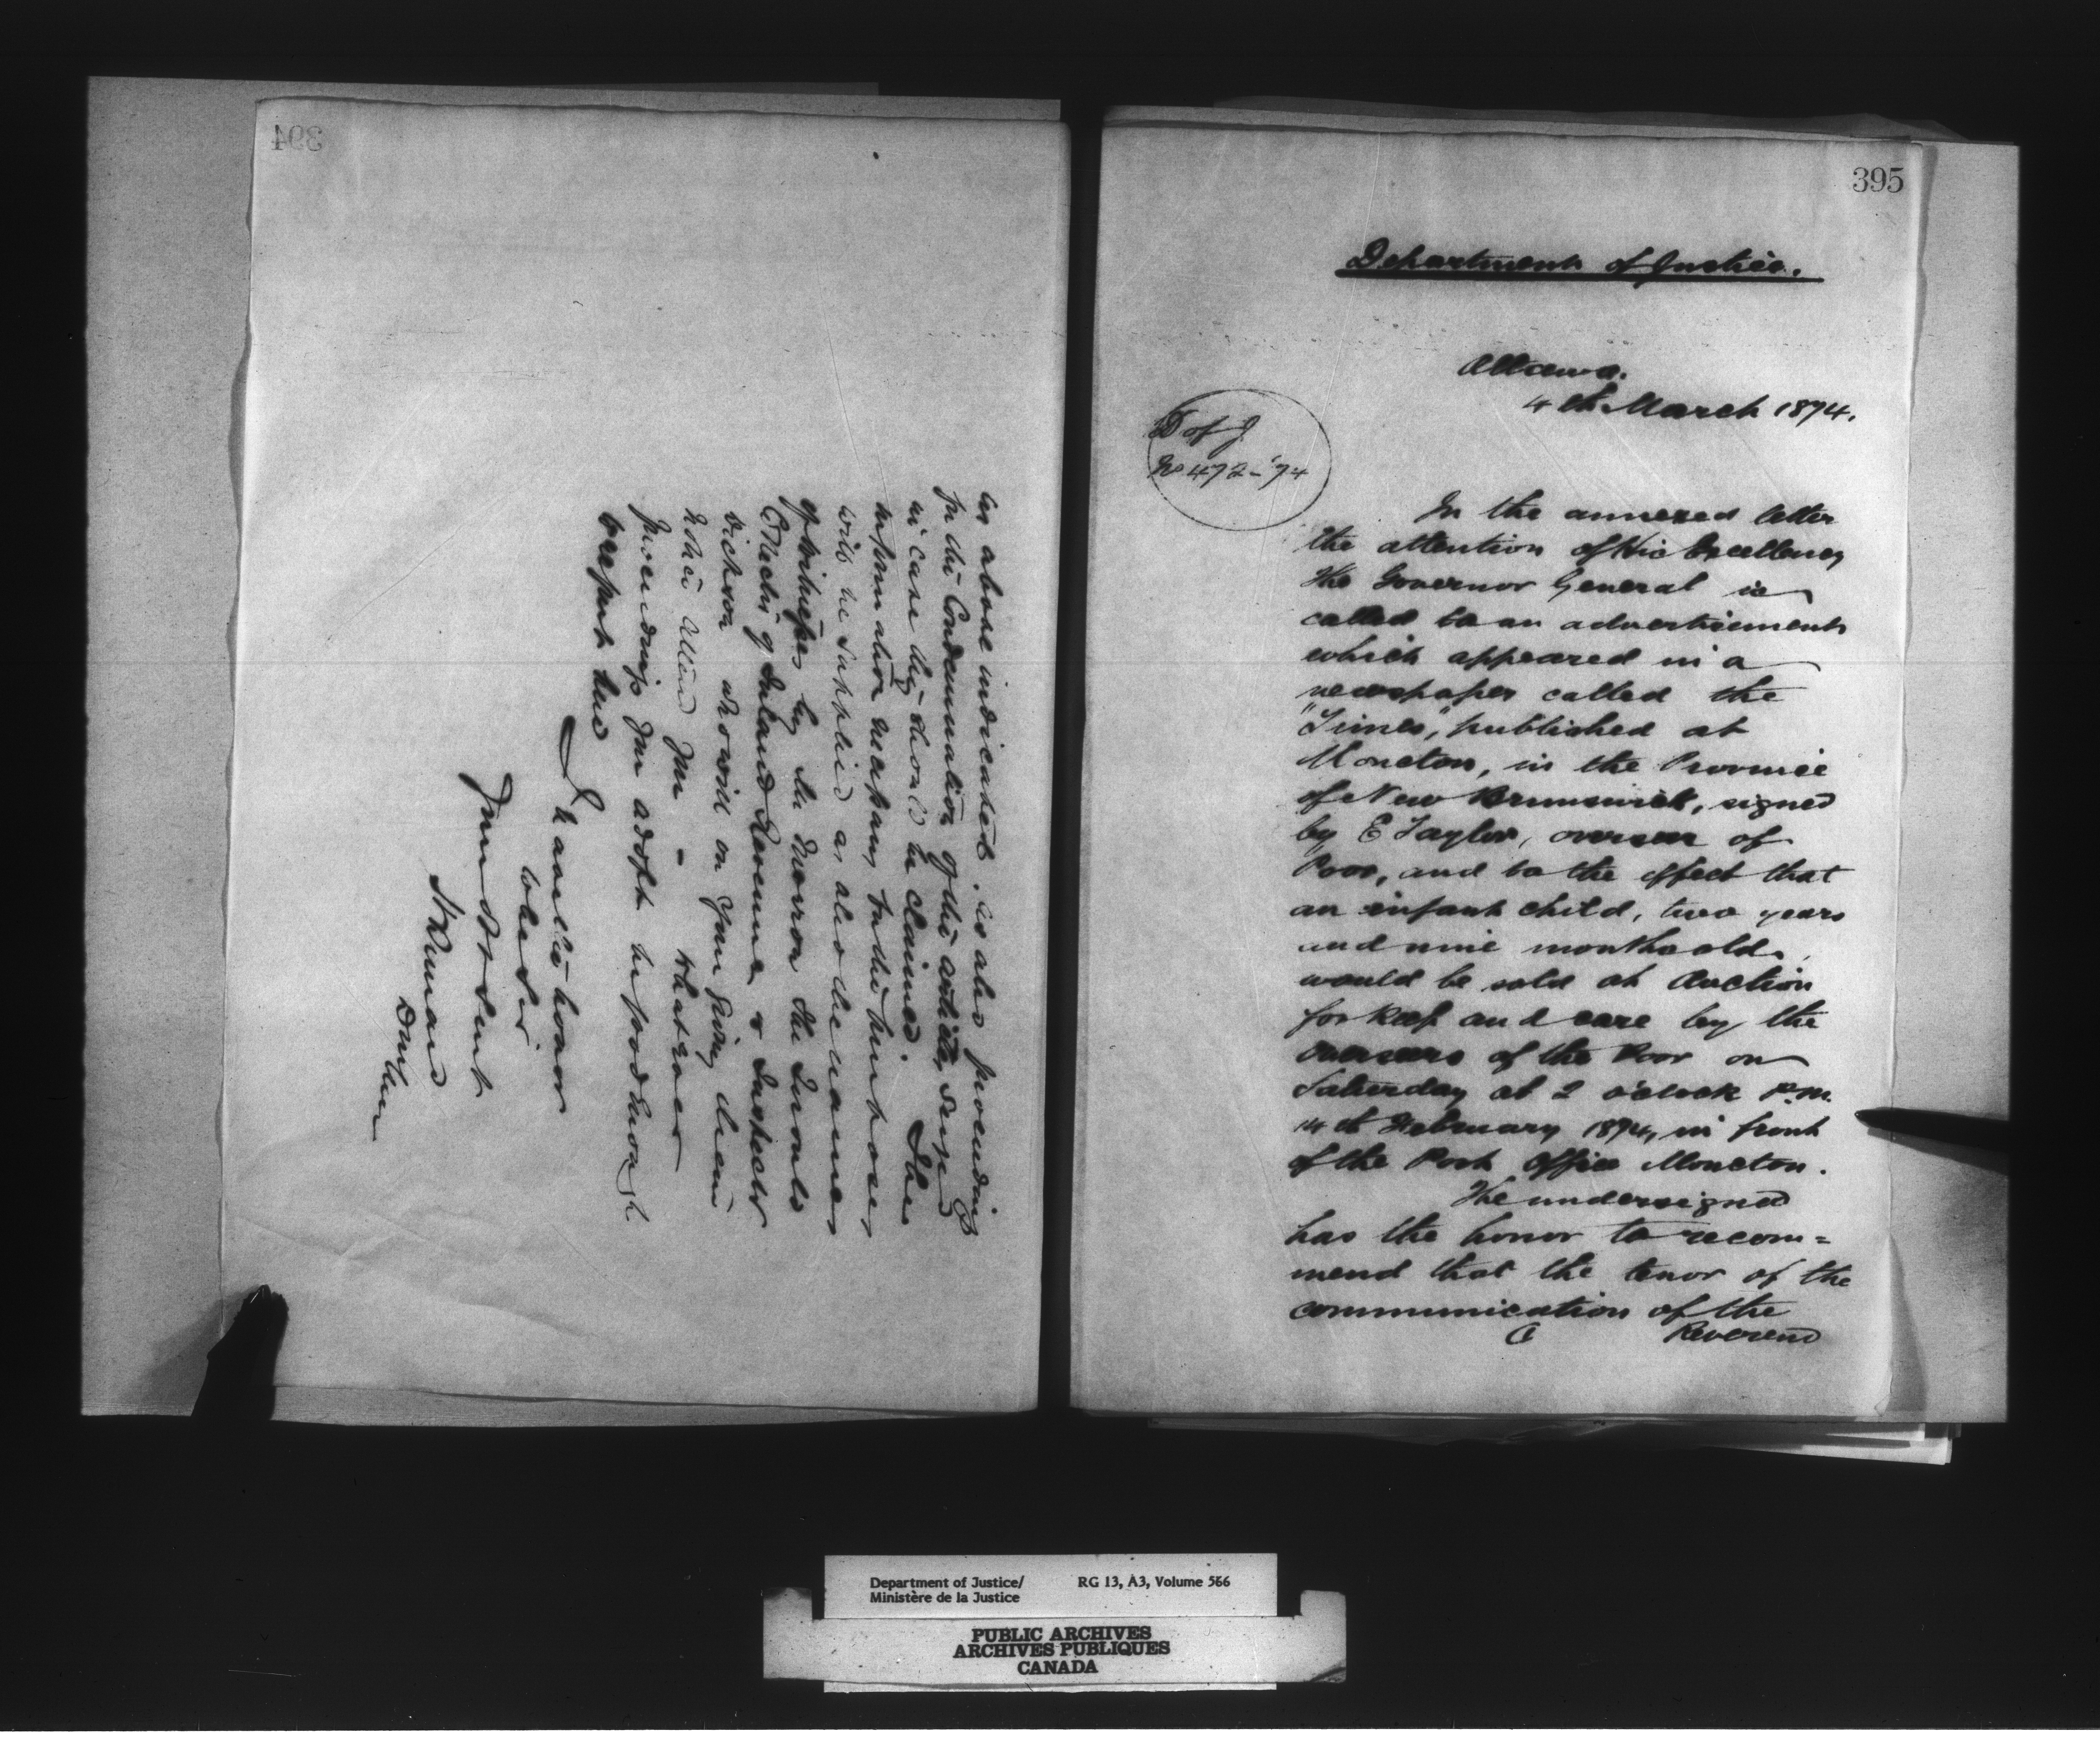 394
as above indicated. as also proceeding
for the Condemnation of the articles seized
in case they should be claimed. The
information necessary for this purpose,
will be supplied as also the names
of witnesses by Mr the Gerald
Collector of Inland Revenue & Inspector
Dickson who will on your giving them
notice attend you - whatever
proceedings you adopt be good enough
to report here
I have the honor
to be Sir
Your obt Servt
H Bernard
395
Department of Justice.
Ottawa.
4th March 1874.
D of J
No 472-'74
In the annexed letter
the attention of His Excellency
the Governor General is
called to an advertisement
which appeared in a
newspaper called the
"Times," published at
Moncton, in the Province
of New Brunswick, signed
by E Taylor, overseer of
Poor, and to the effect that
an infant child, two years
and nine months old,
would be sold at Auction
for keep and care by the
overseers of the Poor on
Saturday at 2 o'clock P.M.
14th February 1874, in front
of the Post Office Moncton.
The undersigned
has the honor to recom=
mend that the tenor of the
communication of the
Reverend
Department of Justice/
Ministère de la Justice
RG 13, A3, Volume 566
PUBLIC ARCHIVES
ARCHIVES PUBLIQUES
CANADA